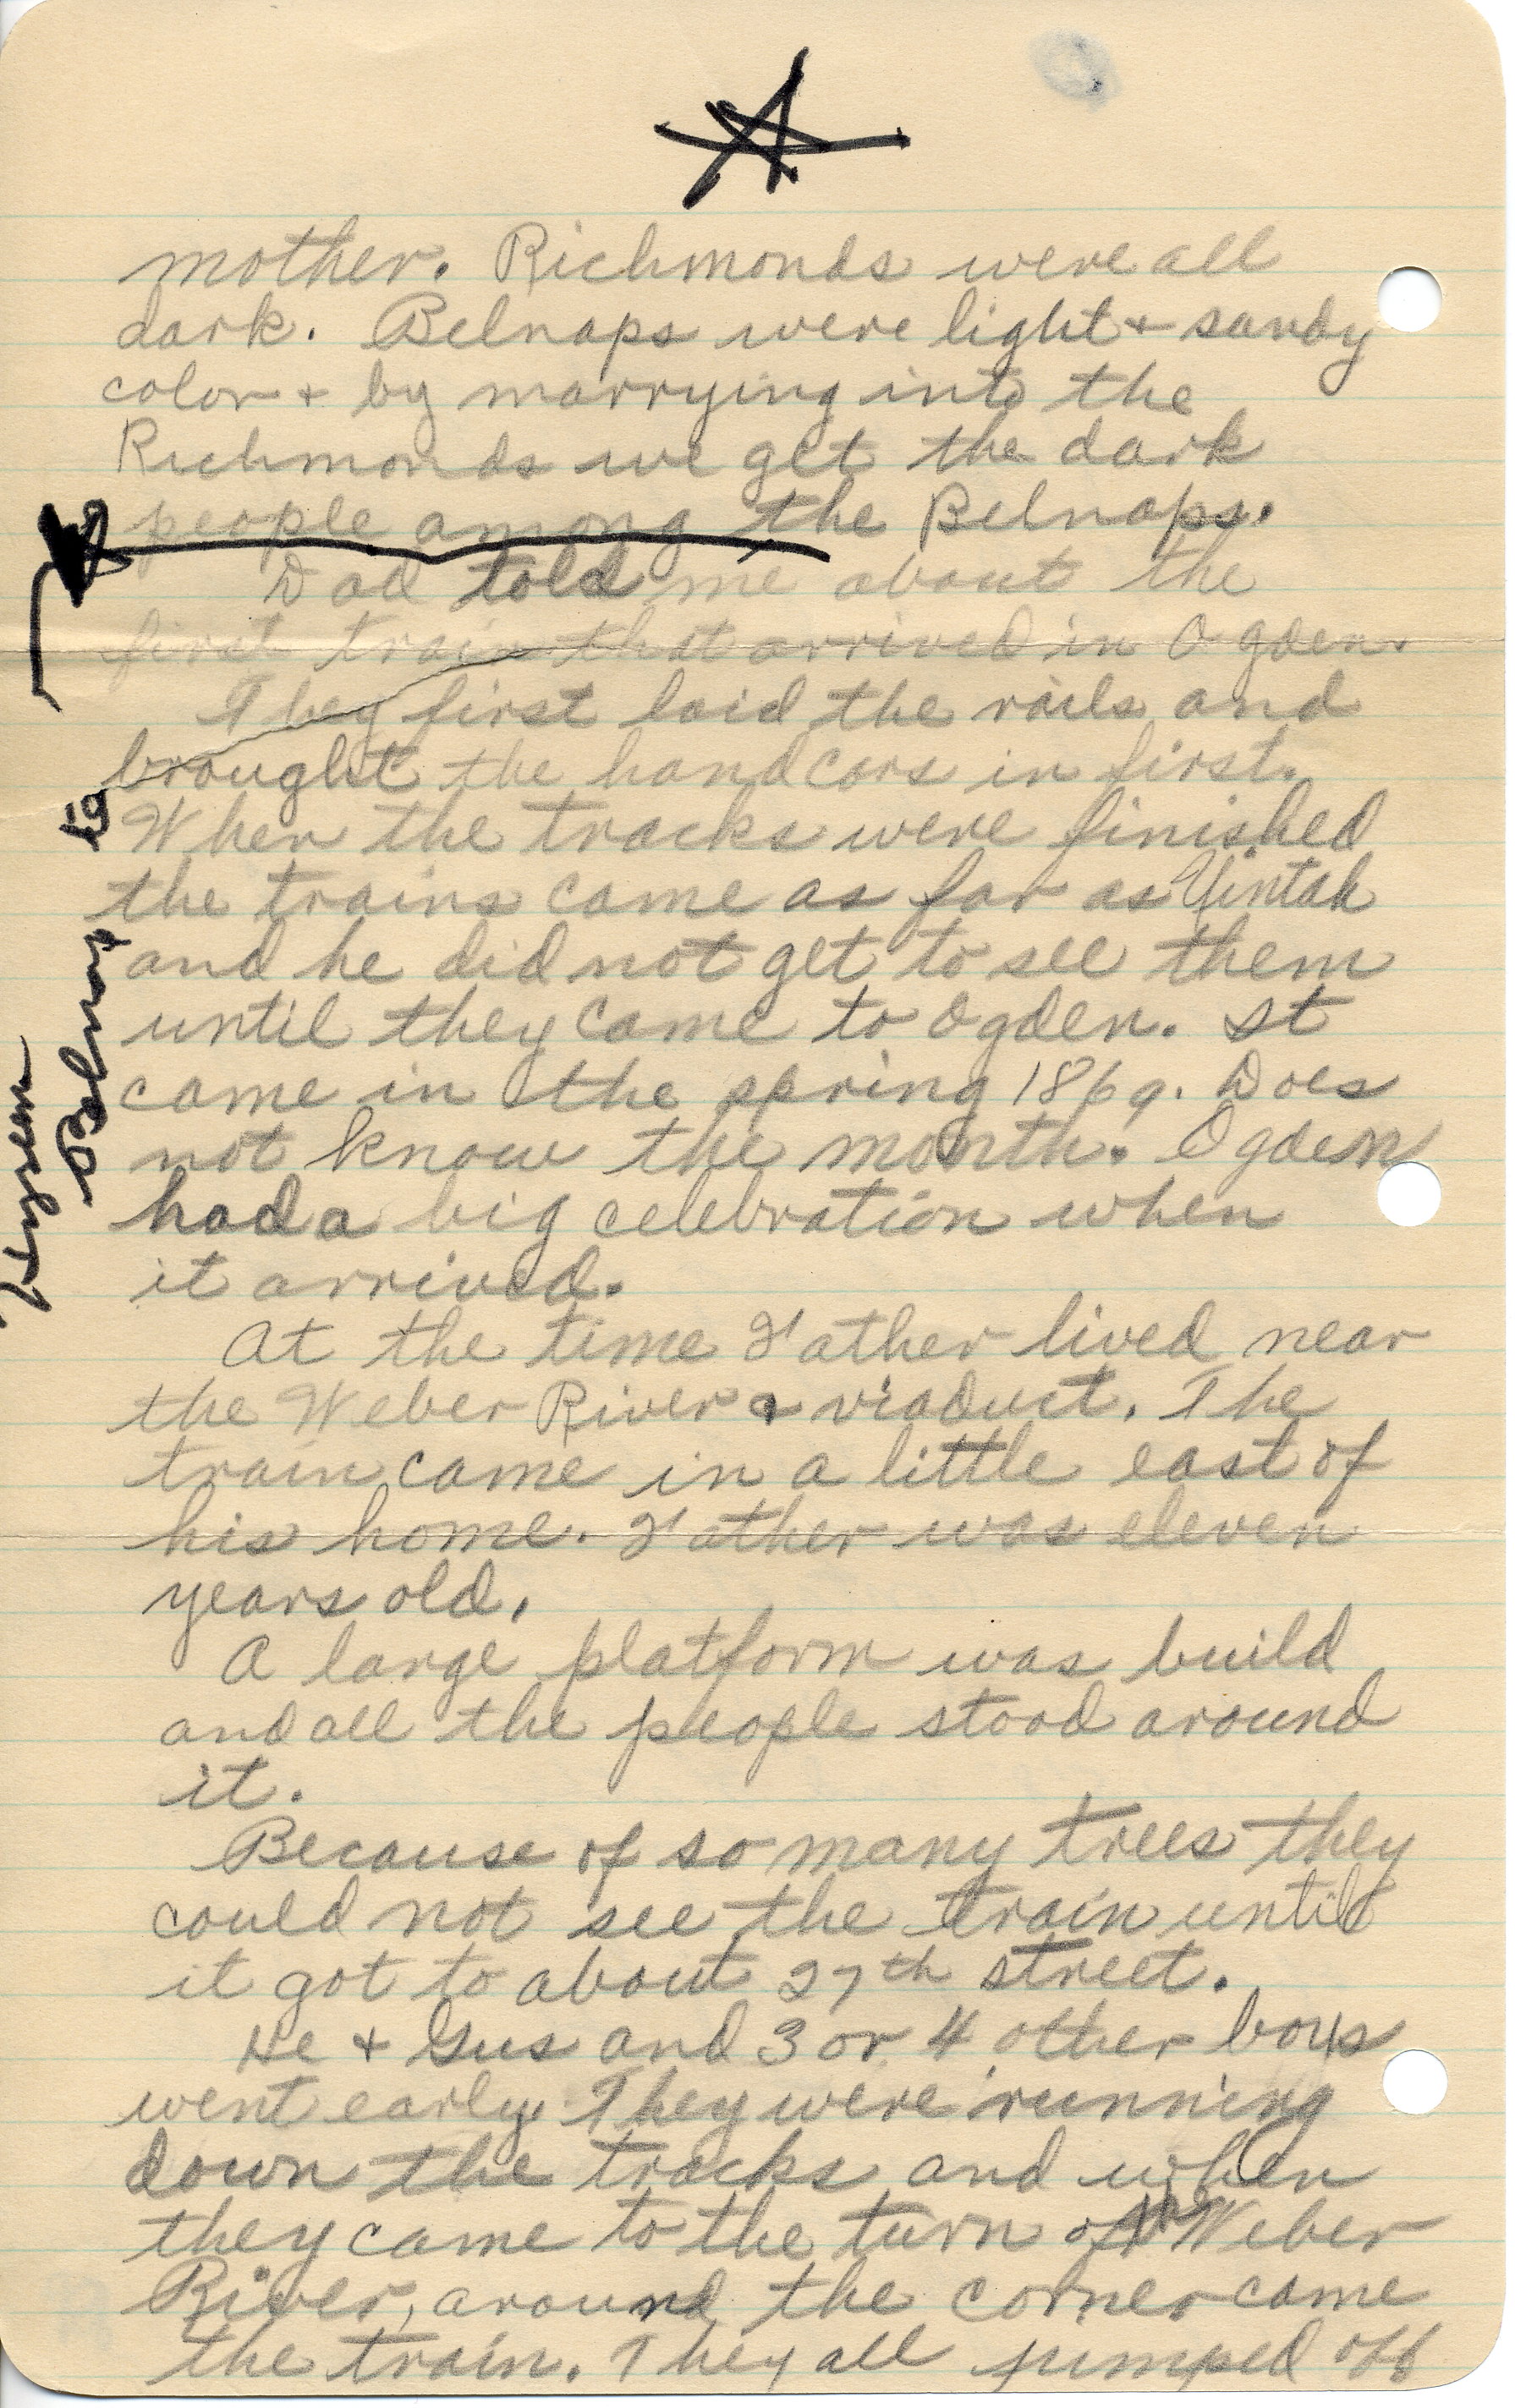 mother. Richmonds were all
dark. Belnaps were light + sandy
color + by marrying into the
Richmonds we get the dark
people among the Belnaps.
Dad told me about the
first train that arrived in Ogden.
They first laid the rails and
brought the handcars in first.
When the tracks were finished
the trains came as far as Uintah
and he did not get to see them
until they came to Ogden. It
came in the spring 1869. Does
not know the month. Ogden
had a big celebration when
it arrived.
At the time Father lived near
the Weber River & viaduct. The
train came in a little east of
his home. Father was eleven
years old.
A large platform was build
and all the people stood around
it.
Because of so many trees they
could not see the train until
it got to about 27th street.
He + Gus and 3 or 4 other boys
went early. They were running
down the tracks and when
they came to the turn of Weber
River, around the corner came
the train. They all jumped off
by
Hyrum
Belnap